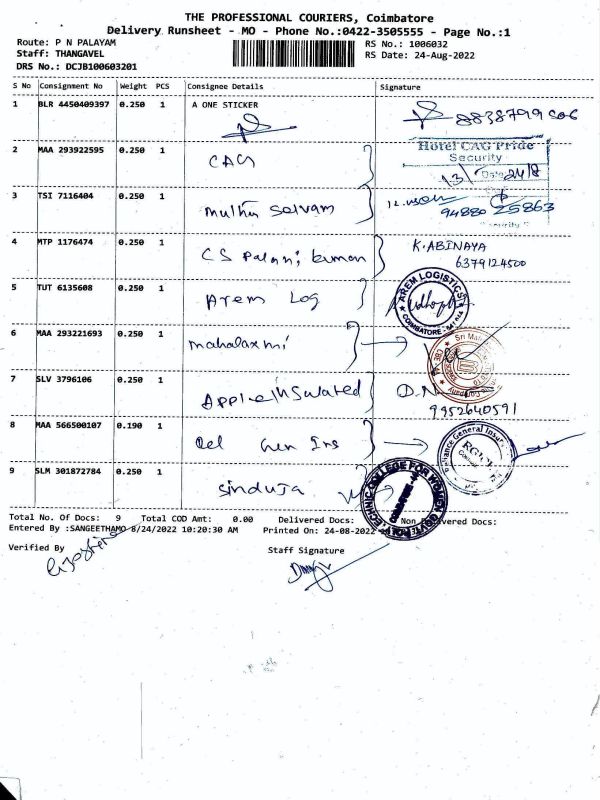 THE PROFESSIONAL COURIERS, Coimbatore
Delivery Runsheet - MO - Phone No.:0422-3505555 - Page No.:1
Route: P N PALAYAM
RS No.: 1006032
Staff: THANGAVEL
RS Date: 24-Aug-2022
DRS No.: DCJB100603201
S No Consignment No Weight PCS Consignee Details Signature
1 BLR 4450409397 0.250 1 A ONE STICKER
2 MAA 293922595 0.250 1 CAG
Hotel CAG Pride
Security
Date 24/8
3 TSI 7116404 0.250 1 Muthu Selvam
94880 25863
4 MTP 1176474 0.250 1 CS Palani kuman K. ABINAYA
6379124500
5 TUT 6135608 0.250 1 Arem Log
AREM LOGISTICS
COIMBATORE
6 MAA 293221693 0.250 1 mahalaxmi
7 SLV 3796106 0.250 1 Apple insulated D.N
9952640591
8 MAA 566500107 0.190 1 Rel Gen Ins
Reliance General Insu
9 SLM 301872784 0.250 1 Sinduja
COLLEGE FOR WOMEN
Total No. Of Docs: 9 Total COD Amt: 0.00 Delivered Docs: Non vered Docs:
Entered By :SANGEETHAMO 8/24/2022 10:20:30 AM Printed On: 24-08-2022
Verified By Staff Signature